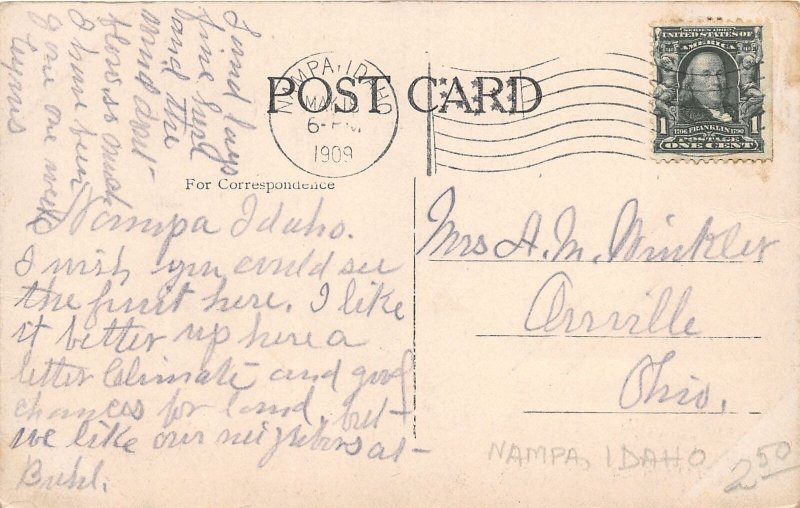 POST CARD
NAMPA, IDAHO
MAR
6-PM
1909
For Correspondence
SERIES 1902
UNITED STATES OF
AMERICA
1706 FRANKLIN 1790
1 1
POSTAGE
ONE CENT
Nampa Idaho.
I wish you could see
the fruit here. I like
it better up here a
better Climate and good
chances for land, but
we like our neighbors at
Buhl.
land lays
fine
and the
wind dont
blow so much
I have been
gone one week
Mrs A. M. Winkler
Orrville
Ohio.
NAMPA, IDAHO
2.50